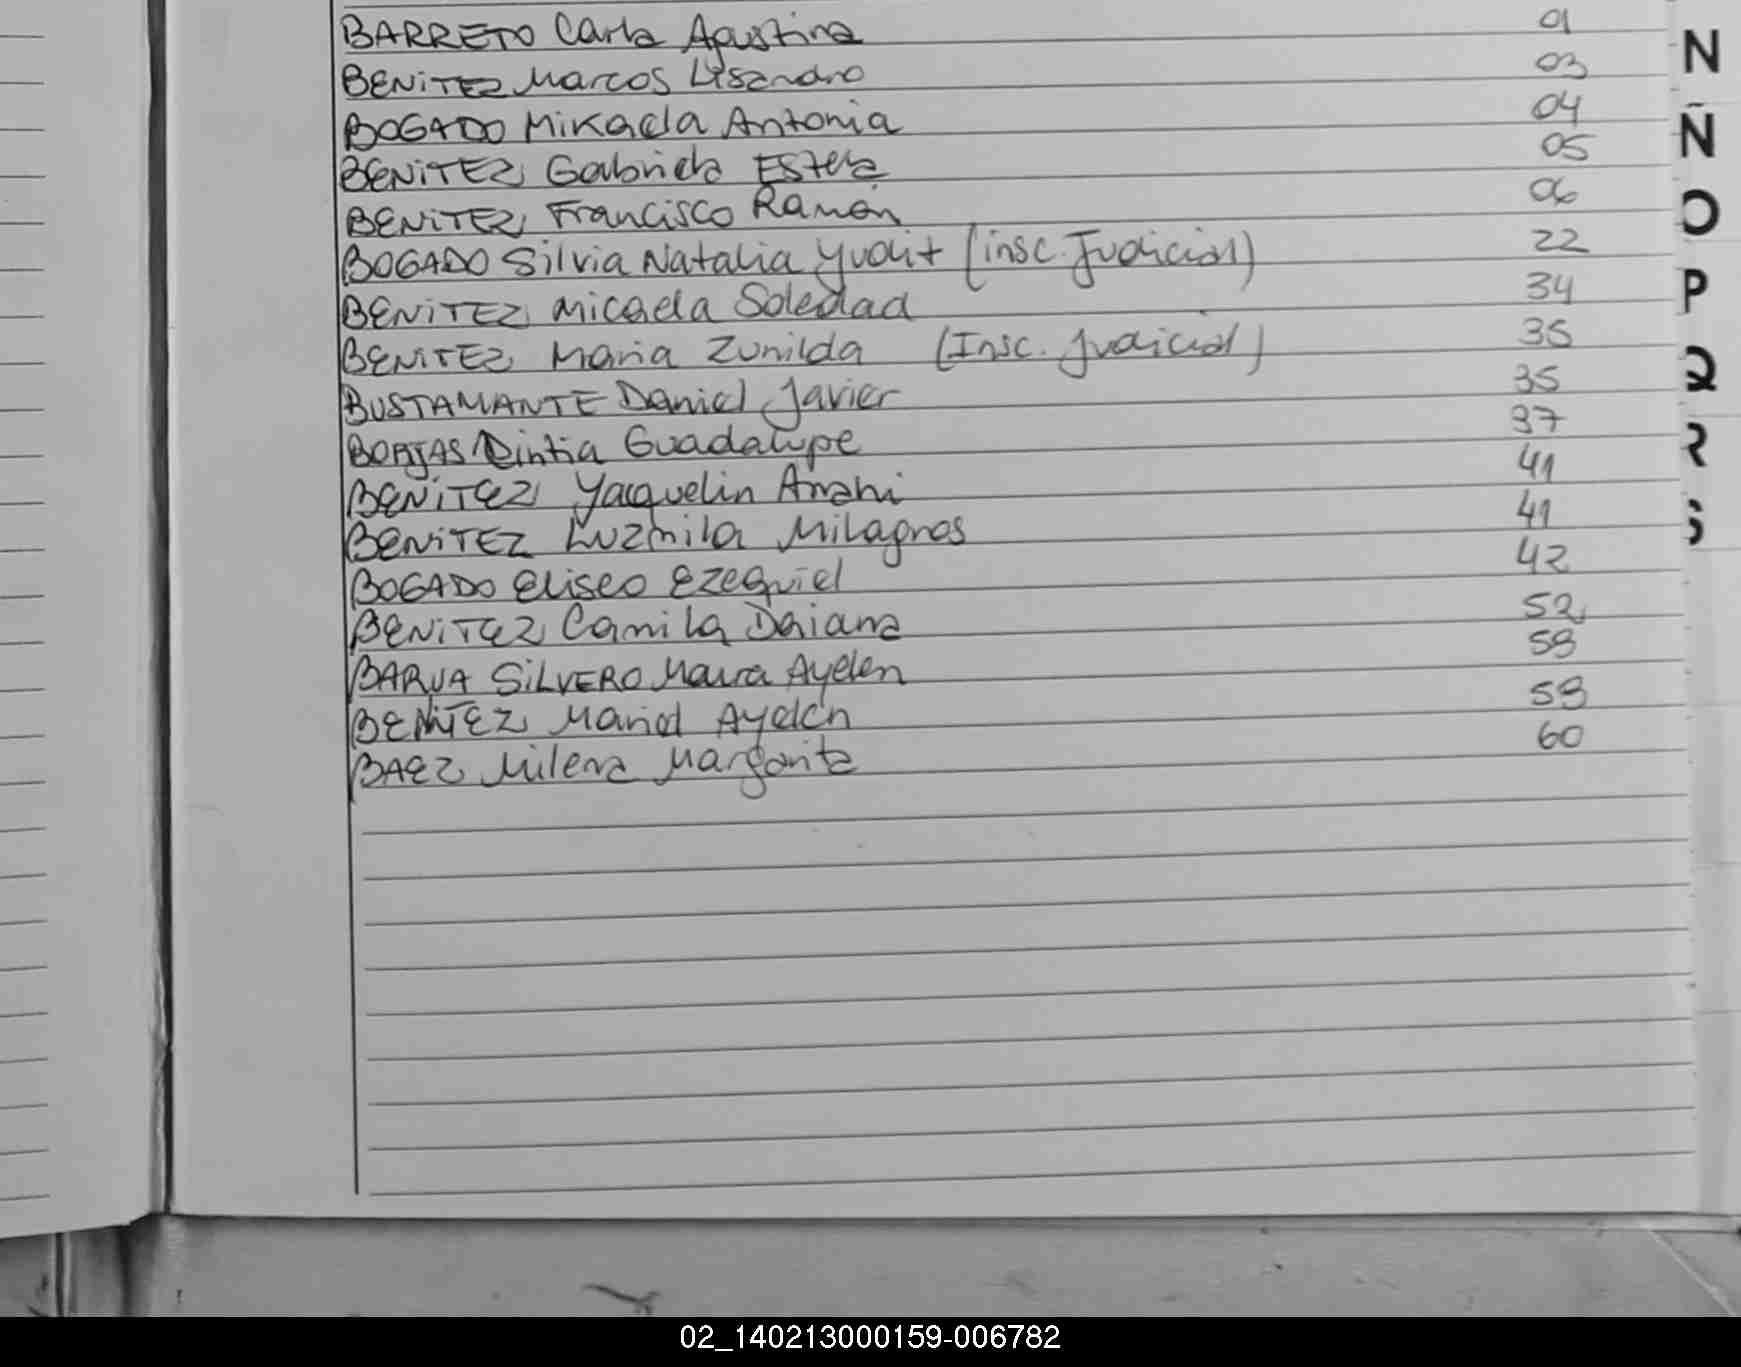 BARRETO Carla Agustina 01
BENITEZ Marcos Lisandro 03
BOGADO Mikaela Antonia 04
BENITEZ Gabriela Estela 05
BENITEZ Francisco Ramón 06
BOGADO Silvia Natalia Yudit (insc. Judicial) 22
BENITEZ Micaela Soledad 34
BENITEZ Maria Zunilda (Insc. Judicial) 35
BUSTAMANTE Daniel Javier 35
BORJAS Cintia Guadalupe 37
BENITEZ Yaquelin Anahi 41
BENITEZ Luzmila Milagros 41
BOGADO Eliseo Ezequiel 42
BENITEZ Camila Daiana 52
BARUA SILVERO Maura Ayelen 59
BENITEZ Mariel Ayelén 59
BAEZ Milena Margarita 60
N
Ñ
O
P
Q
R
S
02_140213000159-006782